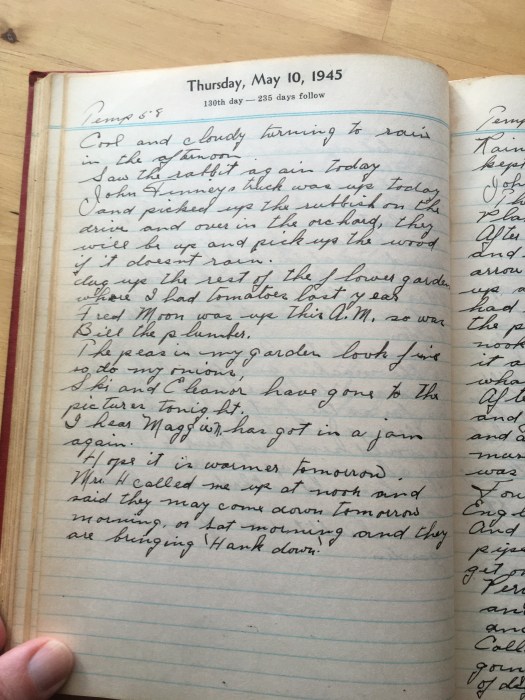 Thursday, May 10, 1945
130th day — 235 days follow
Temp 58
Cool and cloudy turning to rain
in the afternoon.
Saw the rabbit again today
John Finneys truck was up today
and picked up the rubbish on the
drive and over in the orchard, they
will be up and pick up the wood
if it doesnt rain.
dug up the rest of the flower garden
where I had tomatoes last year
Fred Moon was up this A.M. so was
Bill the plumber.
The peas in my garden look fine
so do my onions,
Ski and Eleanor have gone to the
pictures tonight.
I hear Maggie has got in a jam
again.
Hope it is warmer tomorrow.
Mrs H called me up at noon and
said they may come down tomorrow
morning, or Sat morning and they
are bringing "Hank down."
Temp
Rain
kept
Joh
Th
pla
After
and
arrow
up a
had
the p
nook
it a
wha
Afte
and
and a
mus
was
You
Eng
And
pipe
get o
Per
an
and
Call
goin
of d